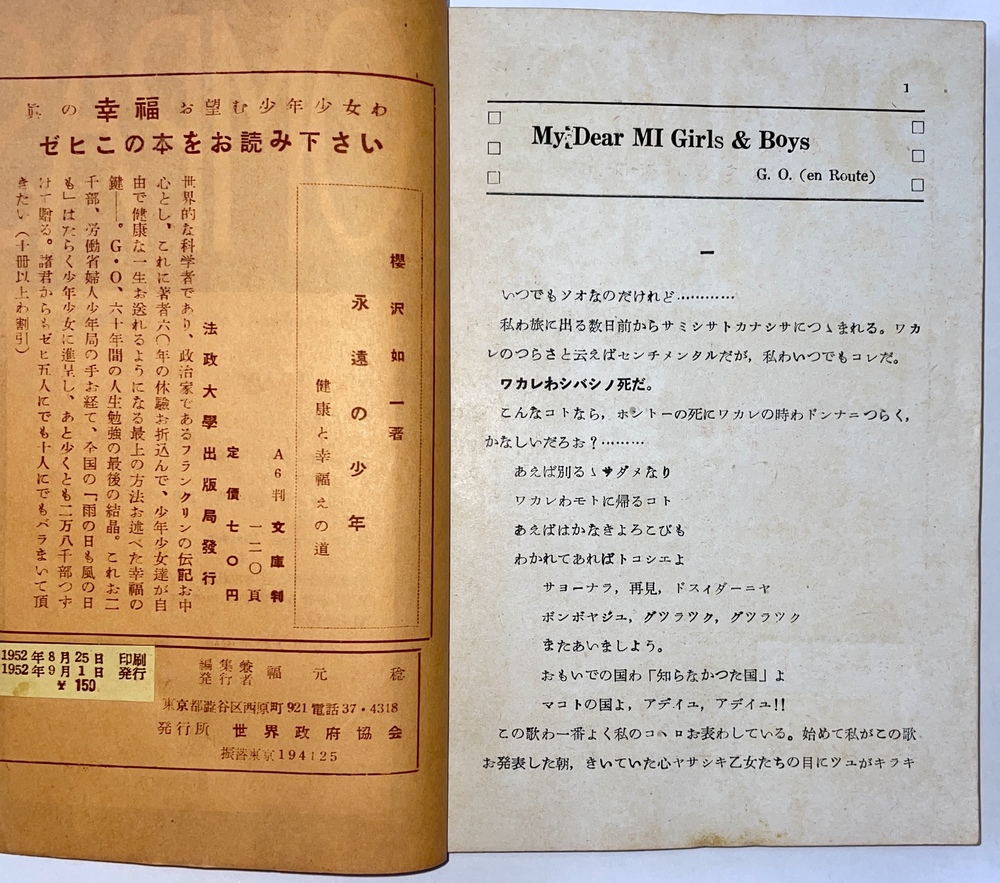 眞の幸福お望む少年少女わ
ゼヒこの本をお読み下さい
櫻沢如一著
永遠の少年
健康と幸福えの道
A6判 文庫判
一二〇頁
定價七〇円
法政大學出版局發行
世界的な科学者であり、政治家であるフランクリンの伝記お中
心とし、これに著者六〇年の体驗お折込んで、少年少女達が自
由で健康な一生お送れるようになる最上の方法お述べた幸福の
鍵——。G・O、六十年間の人生勉強の最後の結晶。これお二
千部、労働省婦人少年局の手お経て、全国の「雨の日も風の日
も」はたらく少年少女に進呈し、あと少くとも二万八千部つず
けて贈る。諸君からもゼヒ五人にでも十人にでもバラまいて頂
きたい(十冊以上わ割引)
1952年8月25日 印刷
1952年9月1日 発行
¥150
編集兼
発行者 福元 稔
東京都澁谷区西原町921電話37・4318
発行所 世界政府協会
振替東京194125
1
My Dear MI Girls & Boys
G. O. (en Route)
一
いつでもソオなのだけれど…………
私わ旅に出る数日前からサミシサトカナシサにつゝまれる。ワカ
レのつらさと云えばセンチメンタルだが，私わいつでもコレだ。
ワカレわシバシノ死だ。
こんなコトなら，ホントーの死にワカレの時わドンナニつらく，
かなしいだろお？………
あえば別るゝサダメなり
ワカレわモトに帰るコト
あえばはかなきよろこびも
わかれてあればトコシエよ
サヨーナラ，再見，ドスイダーニヤ
ボンボヤジユ，グツラツク，グツラツク
またあいましよう。
おもいでの国わ「知らなかつた国」よ
マコトの国よ，アデイユ，アデイユ!!
この歌わ一番よく私のコヽロお表わしている。始めて私がこの歌
お発表した朝，きいていた心ヤサシキ乙女たちの目にツユがキラキ